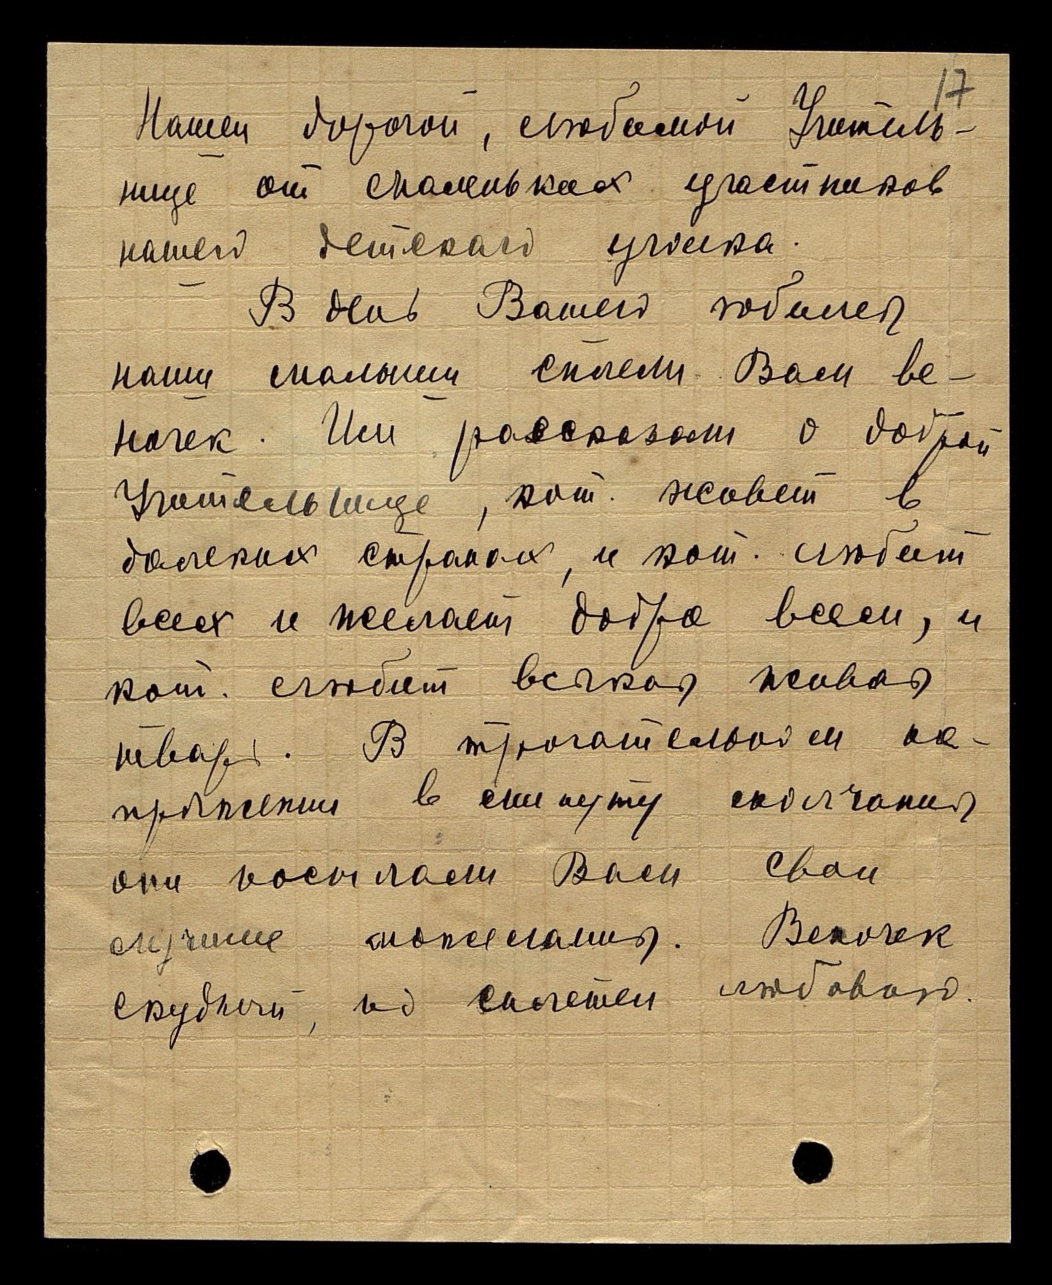 17
Нашей дорогой, любимой Учитель-
нице от маленьких участников
нашего детскаго уголка.
В день Вашего юбилея
наши малыши сплели Вам ве-
ночек. Им рассказали о доброй
Учительнице, кот. живет в
далеких странах, и кот. любит
всех и желает добра всем, и
кот. любит всякая живая
тварь. В трогательном на-
пряжении в минуту молчания
они посылали Вам свои
лучшие пожелания. Веночек
скудный, но сплетен любовью.